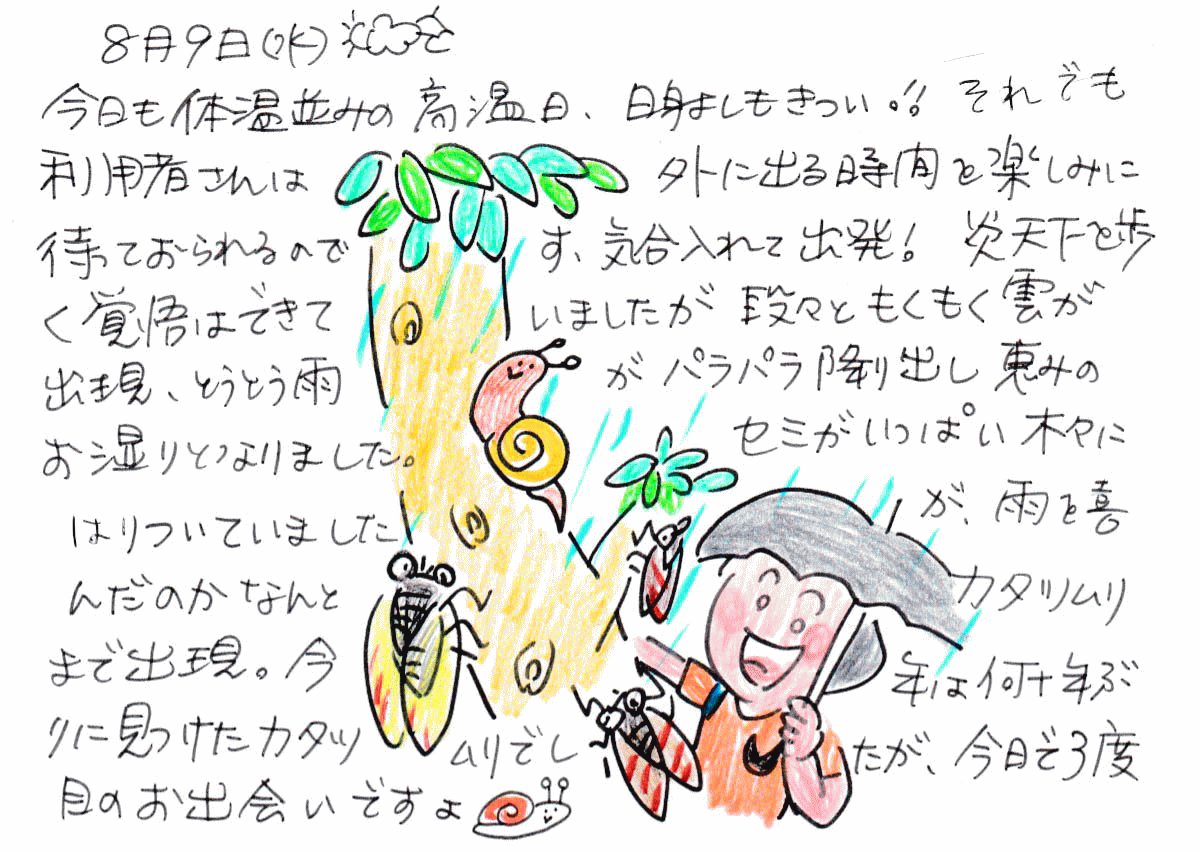 8月9日(水)
今日も体温並みの高温日、日身よしもきつい!! それでも
利用者さんは外に出る時間を楽しみに
待っておられるのです、気合入れて出発! 炎天下を歩
く覚悟はできていましたが段々ともくもく雲が
出現、とうとう雨がパラパラ降り出し恵みの
お湿りとなりました。セミがいっぱい木々に
はりついていましたが、雨を喜
んだのかなんとカタツムリ
まで出現。今年は何十年ぶ
りに見つけたカタツムリでしたが、今日で3度
目のお出会いですよ